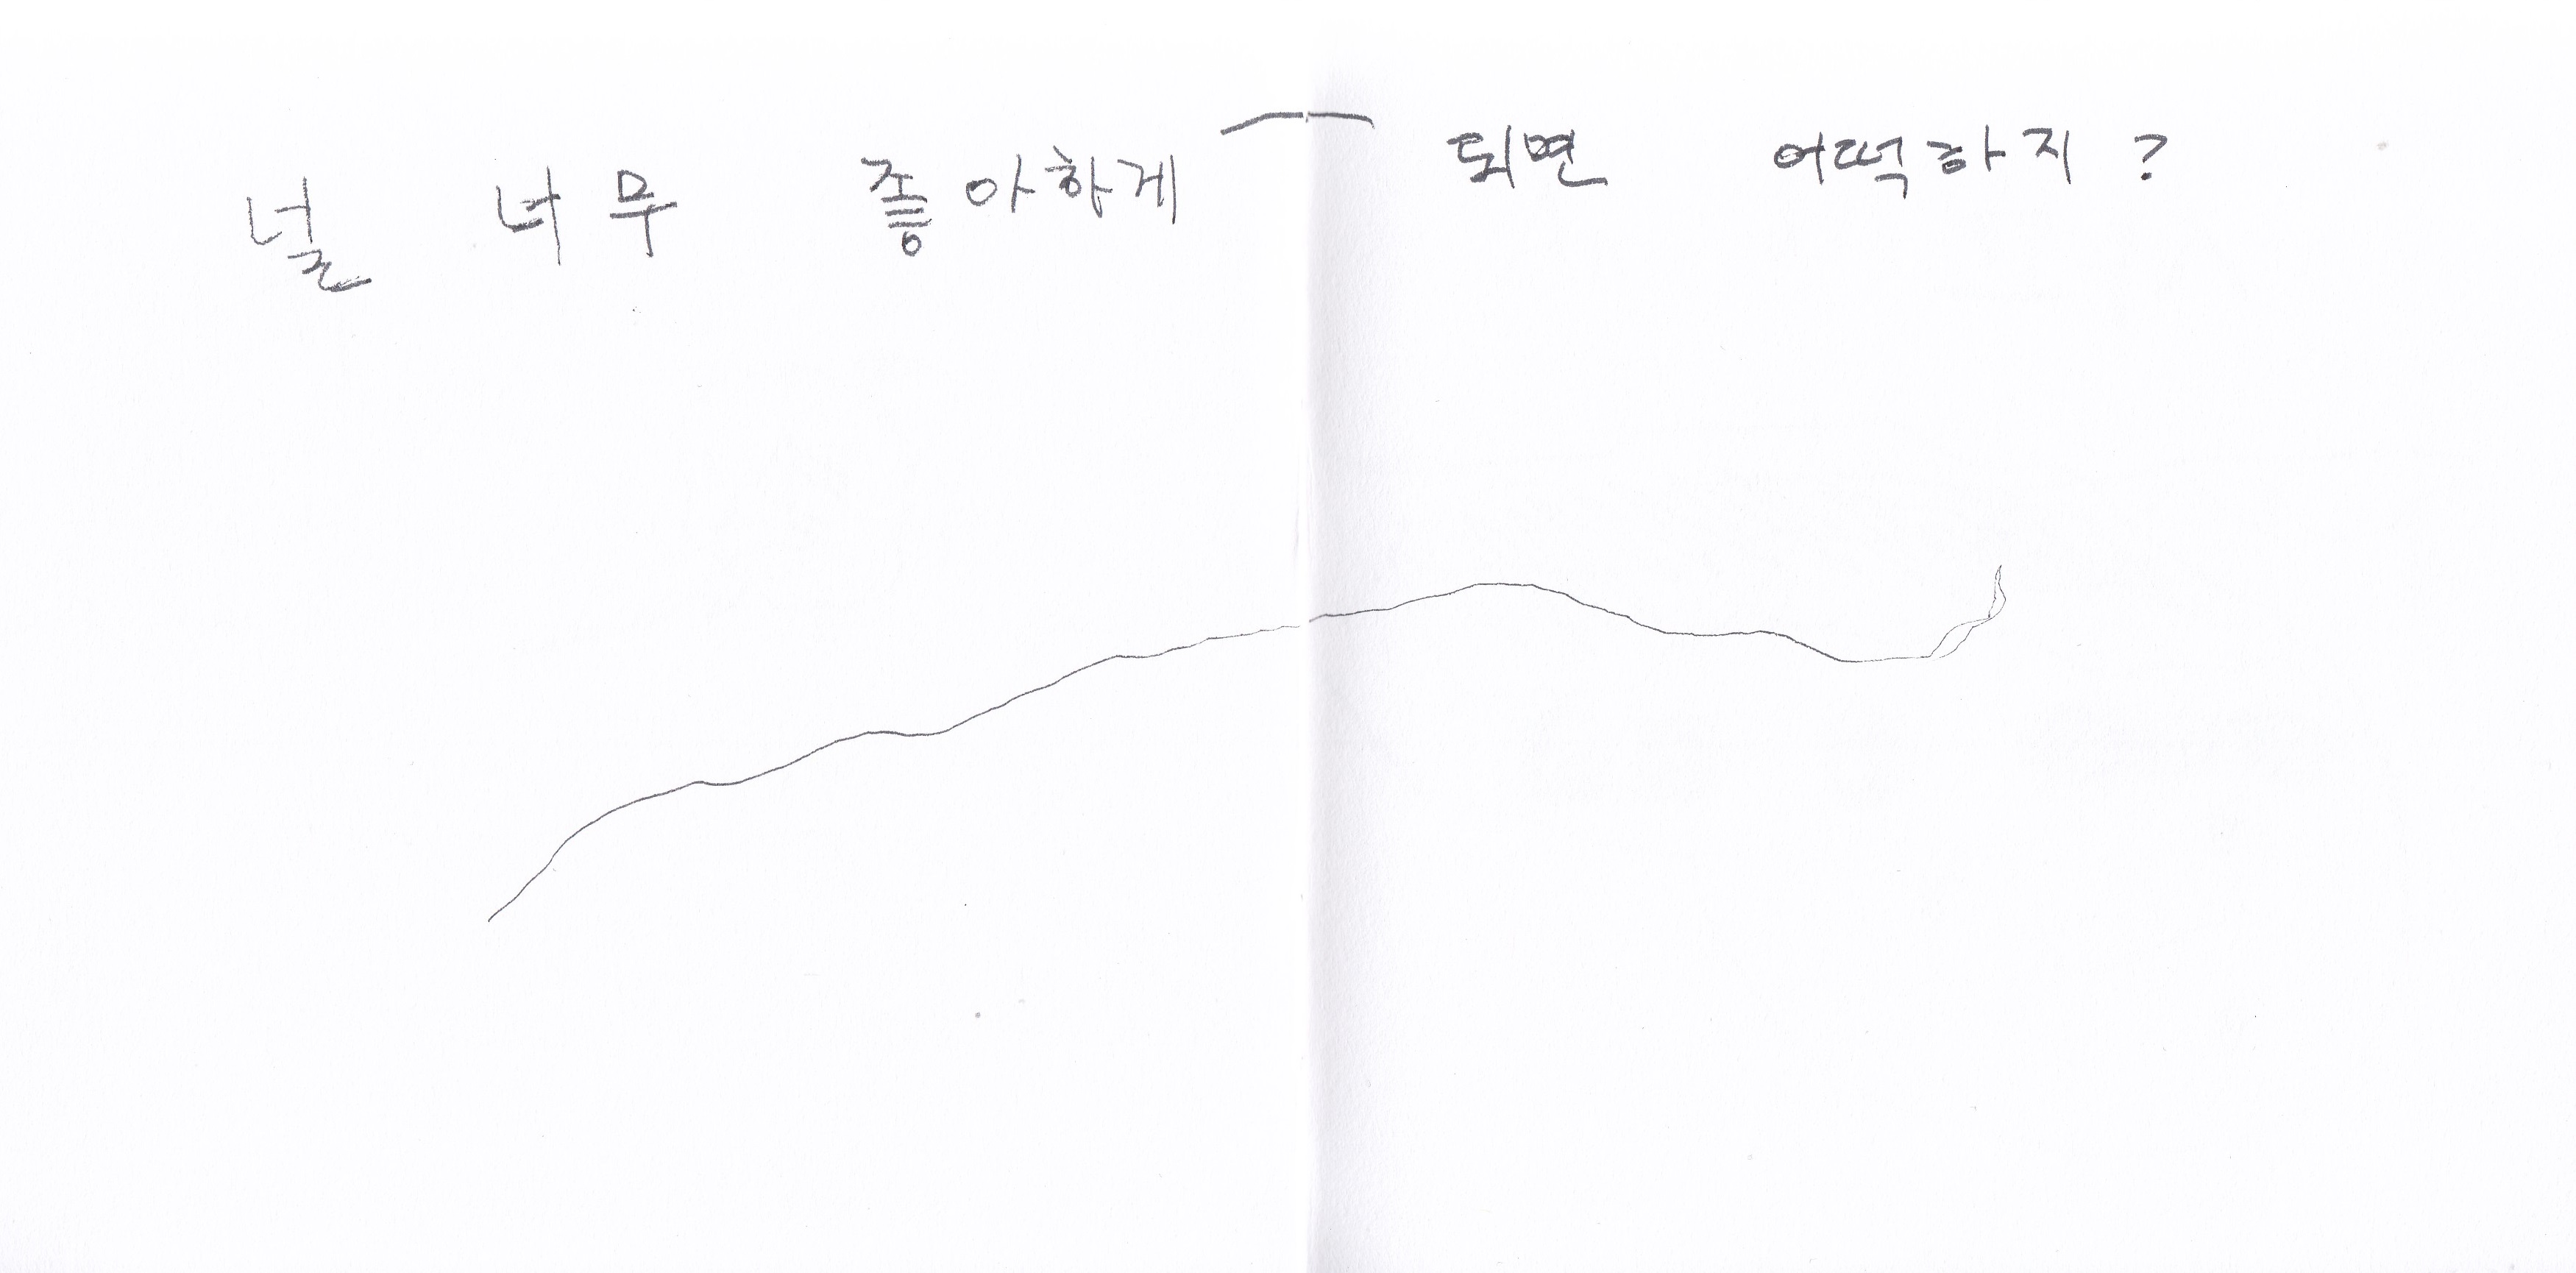 널 너무 좋아하게 되면 어떡하지?